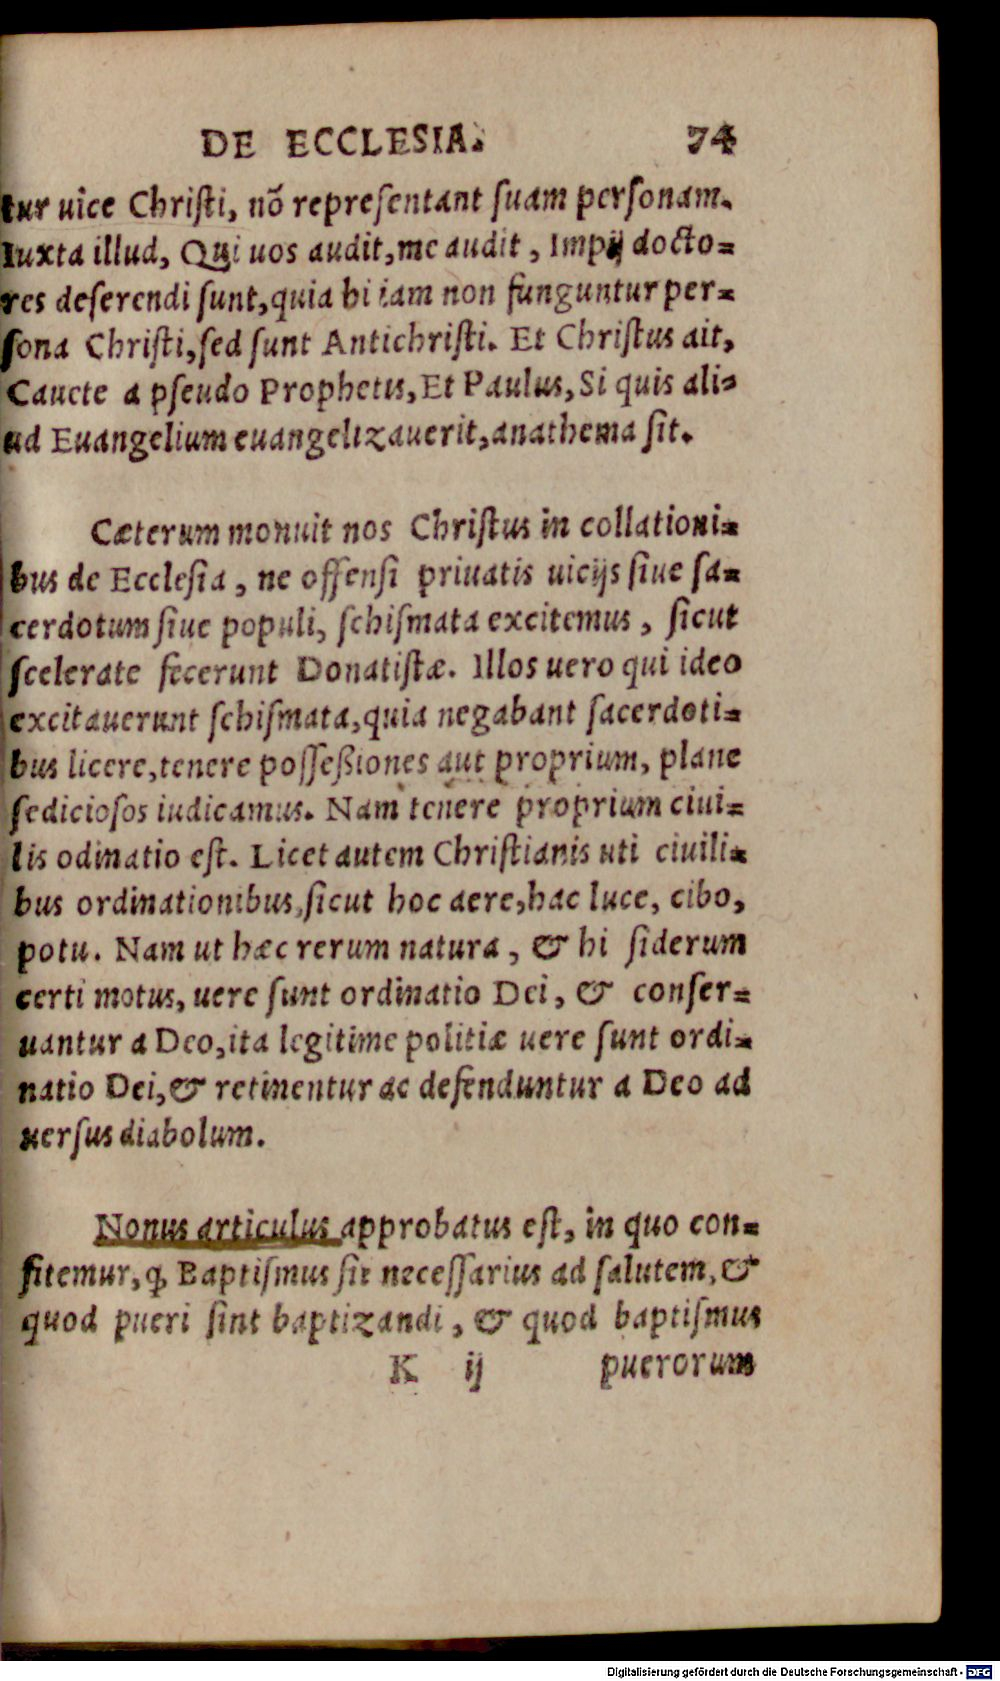 DE ECCLESIA. 74
tur uice Christi, nõ representant suam personam.
Iuxta illud, Qui uos audit, me audit, Impij docto=
res deserendi sunt, quia hi iam non funguntur per=
sona Christi, sed sunt Antichristi. Et Christus ait,
Cauete a pseudo Prophetis, Et Paulus, Si quis ali=
ud Euangelium euangelizauerit, anathema sit.
Cæterum monuit nos Christus in collationi=
bus de Ecclesia, ne offensi priuatis uicijs siue sa=
cerdotum siue populi, schismata excitemus, sicut
scelerate fecerunt Donatistæ. Illos uero qui ideo
excitauerunt schismata, quia negabant sacerdoti=
bus licere, tenere posseßiones aut proprium, plane
sediciosos iudicamus. Nam tenere proprium ciui=
lis odinatio est. Licet autem Christianis uti ciuili=
bus ordinationibus, sicut hoc aere, hac luce, cibo,
potu. Nam ut hæc rerum natura, & hi siderum
certi motus, uere sunt ordinatio Dei, & conser=
uantur a Deo, ita legitime politiæ uere sunt ordi=
natio Dei, & retinentur ac defenduntur a Deo ad
uersus diabolum.
Nonus articulus approbatus est, in quo con=
fitemur, ꝙ Baptismus sit necessarius ad salutem, &
quod pueri sint baptizandi, & quod baptismus
K ij puerorum
Digitalisierung gefördert durch die Deutsche Forschungsgemeinschaft - DFG